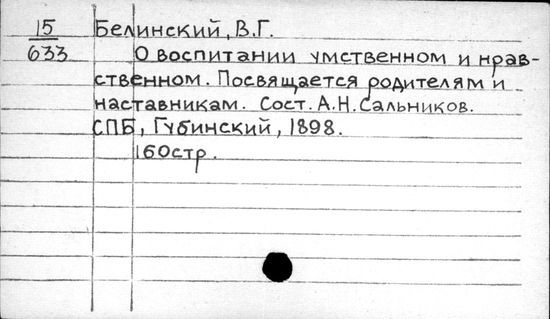 15 Белинский, В.Г.
633 О воспитании умственном и нрав-
ственном. Посвящается родителям и
наставникам. Сост. А.Н. Сальников.
СПБ, Губинский, 1898.
160стр.